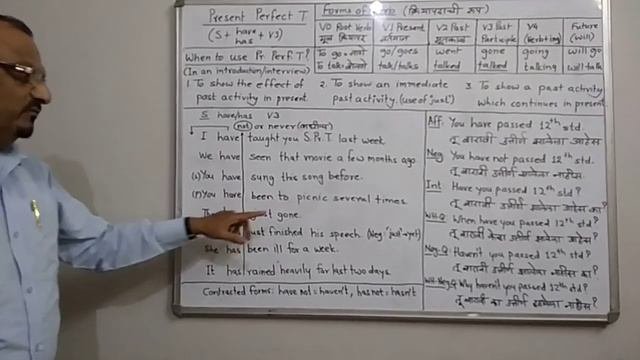 Present Perfect T
(S + have/has + V3)
Forms of (क्रियापदाची रूप)
V0 Past Verb
मूळ क्रियापद
V1 Present
वर्तमान
V2 Past
भूतकाळ
V3 Past Participle
V4
(Verb+ing)
Future
(Will)
To go = जाणे
go/goes
went
gone
going
will go
To talk = बोलणे
talk/talks
talked
talked
talking
will talk
When to use Pr. Perf. T?
(In an introduction/interview)
1 To show the effect of past activity in present
2. To show an immediate past activity. (use of 'just')
3. To show a past activity which continues in present
S have/has V3
not or never
I have taught you S.Pr.T. last week.
We have seen that movie a few months ago.
(S) You have sung this song before.
(P) You have been to picnic several times.
gone.
just finished his speech.
She has been ill for a week.
It has rained heavily for last two days.
Contracted forms: have not = haven't, has not = hasn't
Aff. You have passed 12th std.
तू बारावी उत्तीर्ण झालेला आहेस
Neg. You have not passed 12th std.
तू बारावी उत्तीर्ण झालेला नाहीस.
Int. Have you passed 12th std?
तू बारावी उत्तीर्ण झालेला आहेस का?
WH.Q. When have you passed 12th std?
तू बारावी केव्हा उत्तीर्ण झालेला आहेस?
Neg.Q. Haven't you passed 12th std?
तू बारावी उत्तीर्ण झालेला नाहीस का?
WH-Neg.Q Why haven't you passed 12th std?
तू बारावी का उत्तीर्ण झालेला नाहीस?